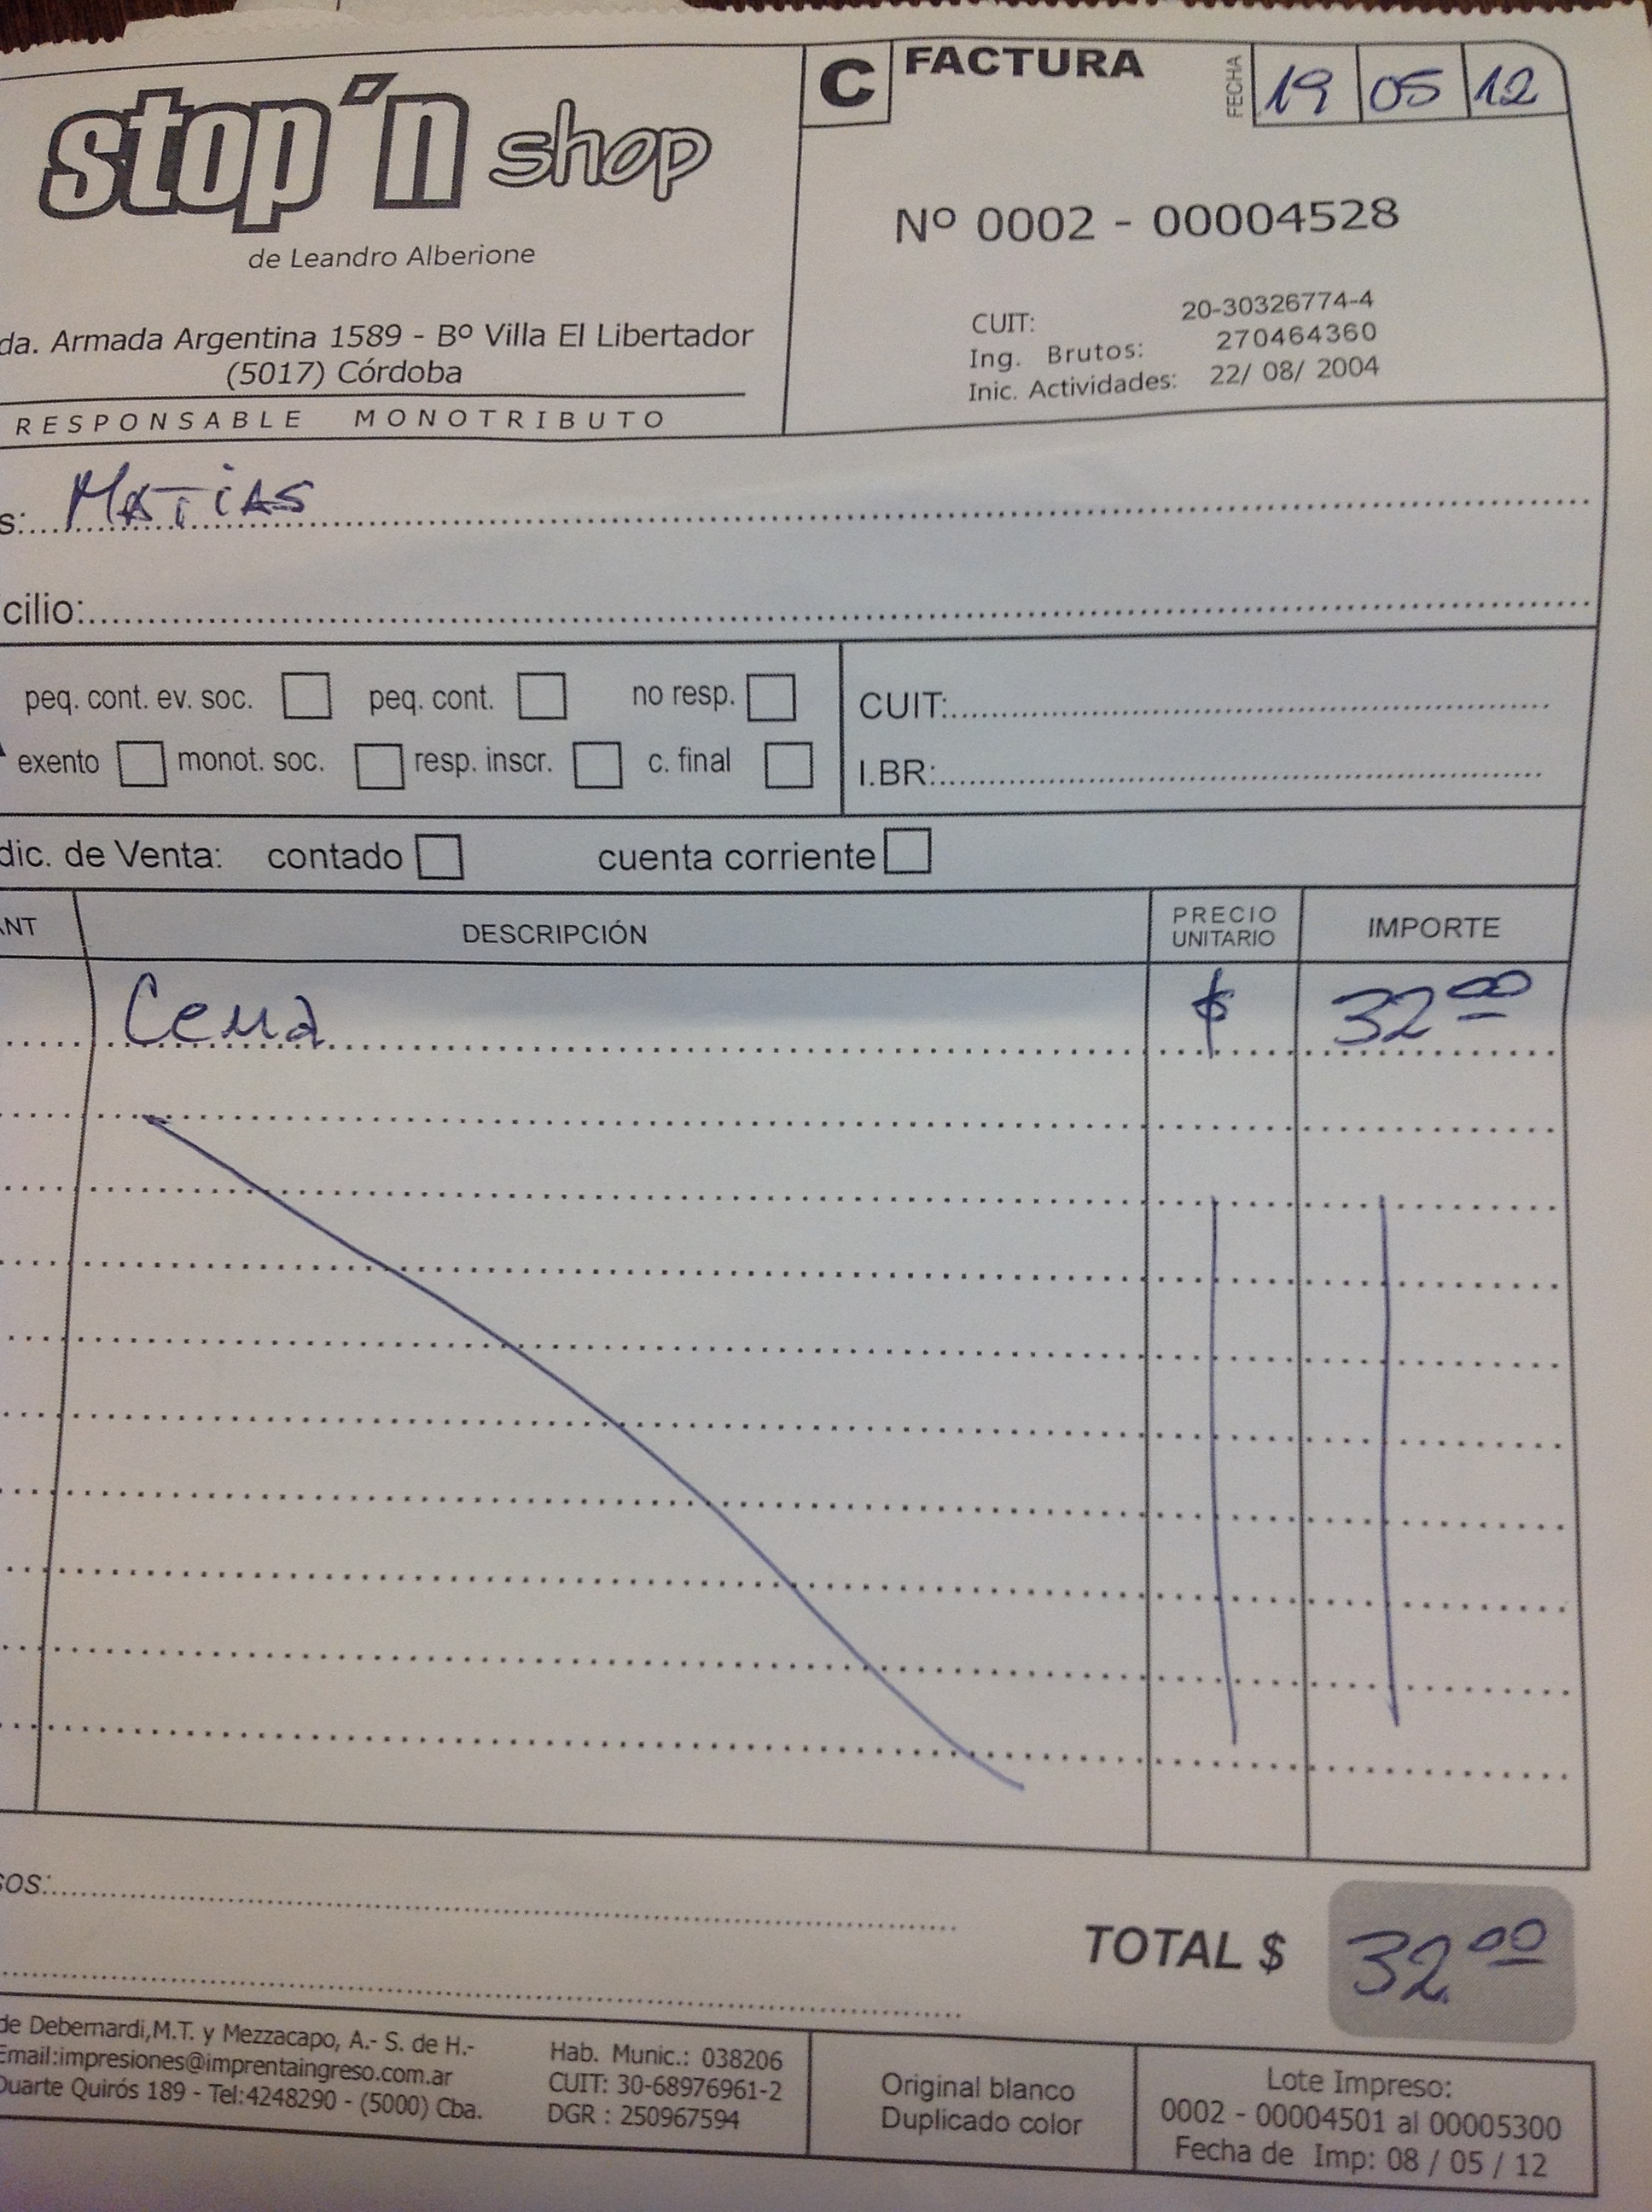 stop'n shop
de Leandro Alberione
da. Armada Argentina 1589 - Bº Villa El Libertador
(5017) Córdoba
RESPONSABLE MONOTRIBUTO
C FACTURA
FECHA 19 05 12
Nº 0002 - 00004528
CUIT: 20-30326774-4
Ing. Brutos: 270464360
Inic. Actividades: 22/ 08/ 2004
s: MATIAS
cilio:
peq. cont. ev. soc. peq. cont. no resp.
exento monot. soc. resp. inscr. c. final
CUIT:
I.BR:
dic. de Venta: contado cuenta corriente
ANT DESCRIPCIÓN PRECIO UNITARIO IMPORTE
Cena $ 32 00
sos:
TOTAL $ 32 00
de Debernardi,M.T. y Mezzacapo, A.- S. de H.-
Email:impresiones@imprentaingreso.com.ar
Duarte Quirós 189 - Tel:4248290 - (5000) Cba.
Hab. Munic.: 038206
CUIT: 30-68976961-2
DGR : 250967594
Original blanco
Duplicado color
Lote Impreso:
0002 - 00004501 al 00005300
Fecha de Imp: 08 / 05 / 12